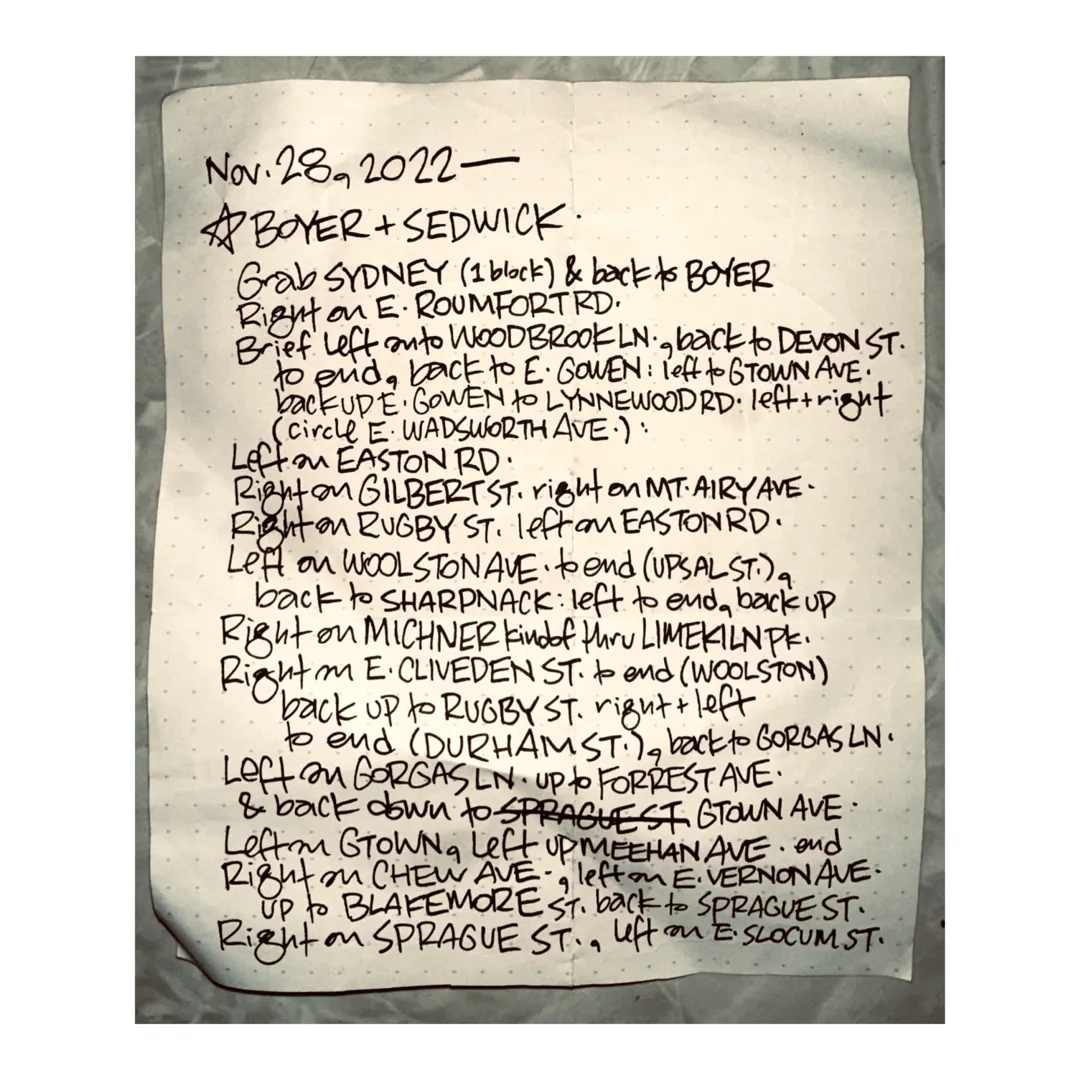 Nov. 28, 2022 —
☆ BOYER + SEDWICK.
Grab SYDNEY (1 block) & back to BOYER
Right on E. ROUMFORT RD.
Brief left onto WOODBROOK LN., back to DEVON ST.
to end, back to E. GOWEN: left to GTOWN AVE.
back UP E. GOWEN to LYNNEWOOD RD. left + right
(circle E. WADSWORTH AVE.):
Left on EASTON RD.
Right on GILBERT ST. right on MT. AIRY AVE.
Right on RUGBY ST. left on EASTON RD.
Left on WOOLSTON AVE. to end (UPSAL ST.),
back to SHARPNACK: left to end, back up
Right on MICHNER kind of thru LIMEKILN Pk.
Right on E. CLIVEDEN ST. to end (WOOLSTON)
back up to RUGBY ST. right + left
to end (DURHAM ST.), back to GORGAS LN.
Left on GORGAS LN. up to FORREST AVE.
& back down to SPRAGUE ST. GTOWN AVE.
Left on GTOWN, Left UP MEEHAN AVE. end
Right on CHEW AVE., left on E. VERNON AVE.
UP to BLAKEMORE ST. back to SPRAGUE ST.
Right on SPRAGUE ST., left on E. SLOCUM ST.